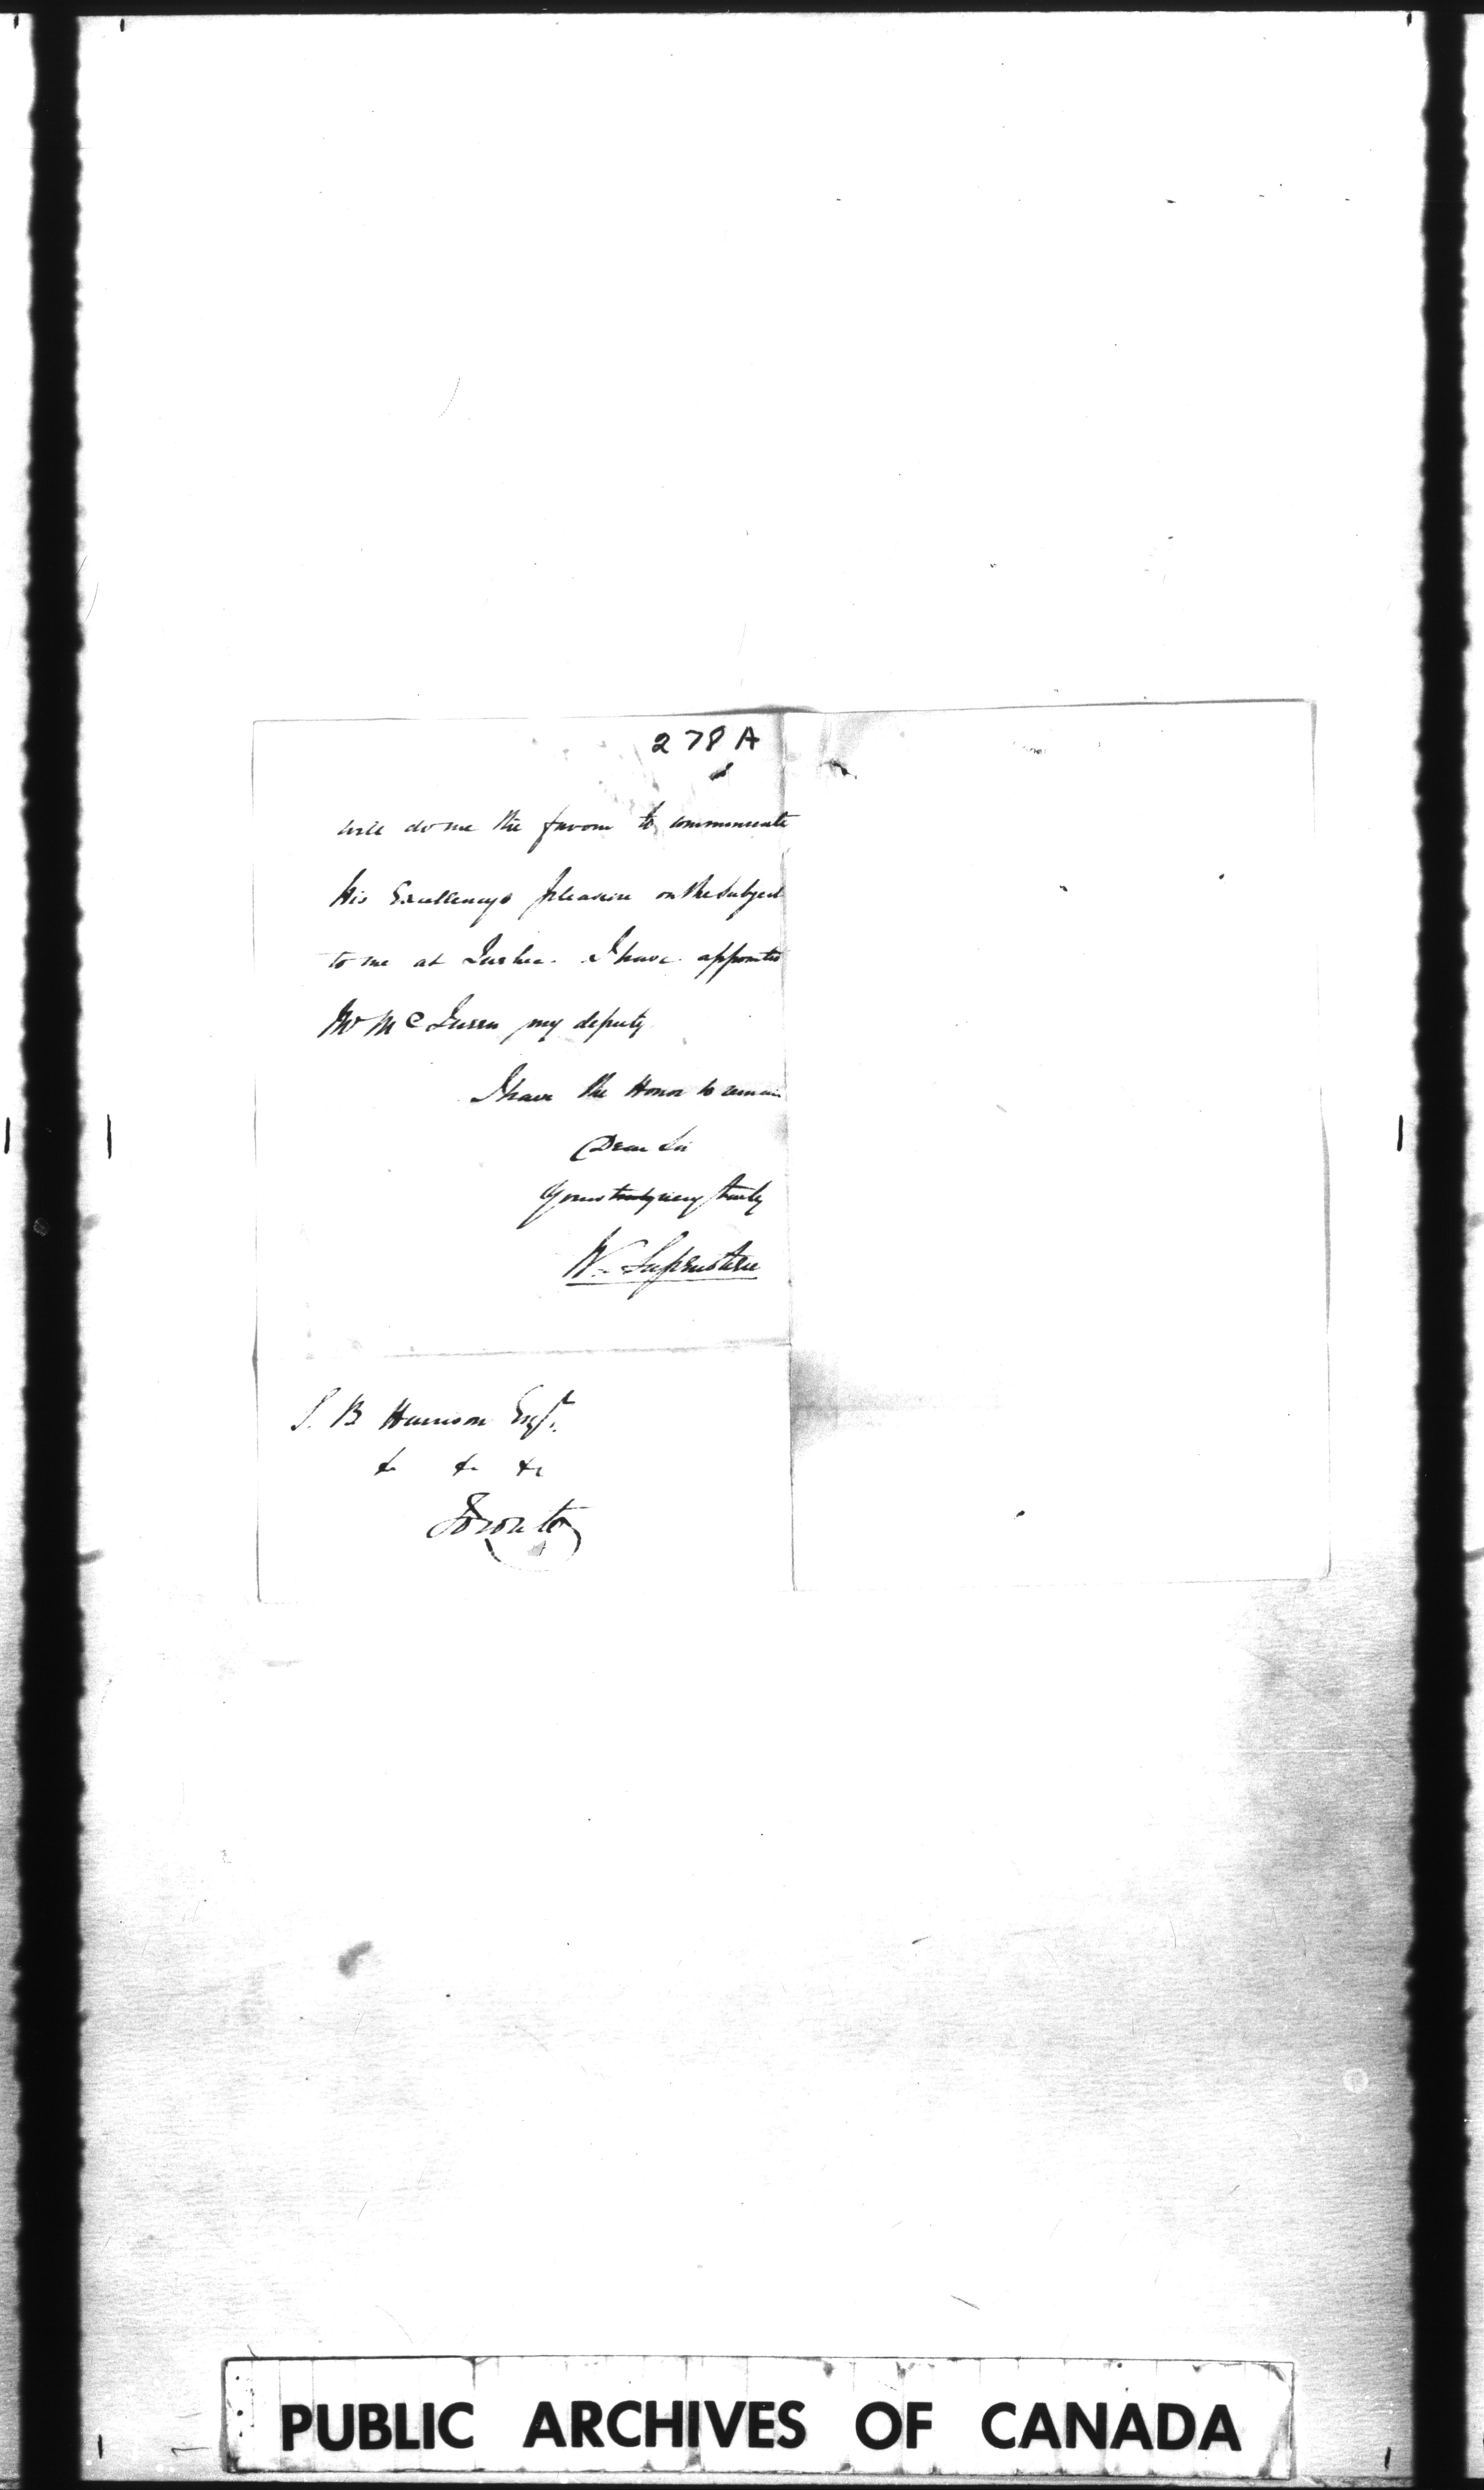 278 A
will do me the favour to communicate
his Excellencys pleasure on the Subject
to me at Quebec. I have appointed
Mr Mc my deputy
I have the Honor to remain
Dear Sir
Yours truly very truly
W.
S. B Harrison Esqr.
&c &c &c
Toronto
PUBLIC ARCHIVES OF CANADA